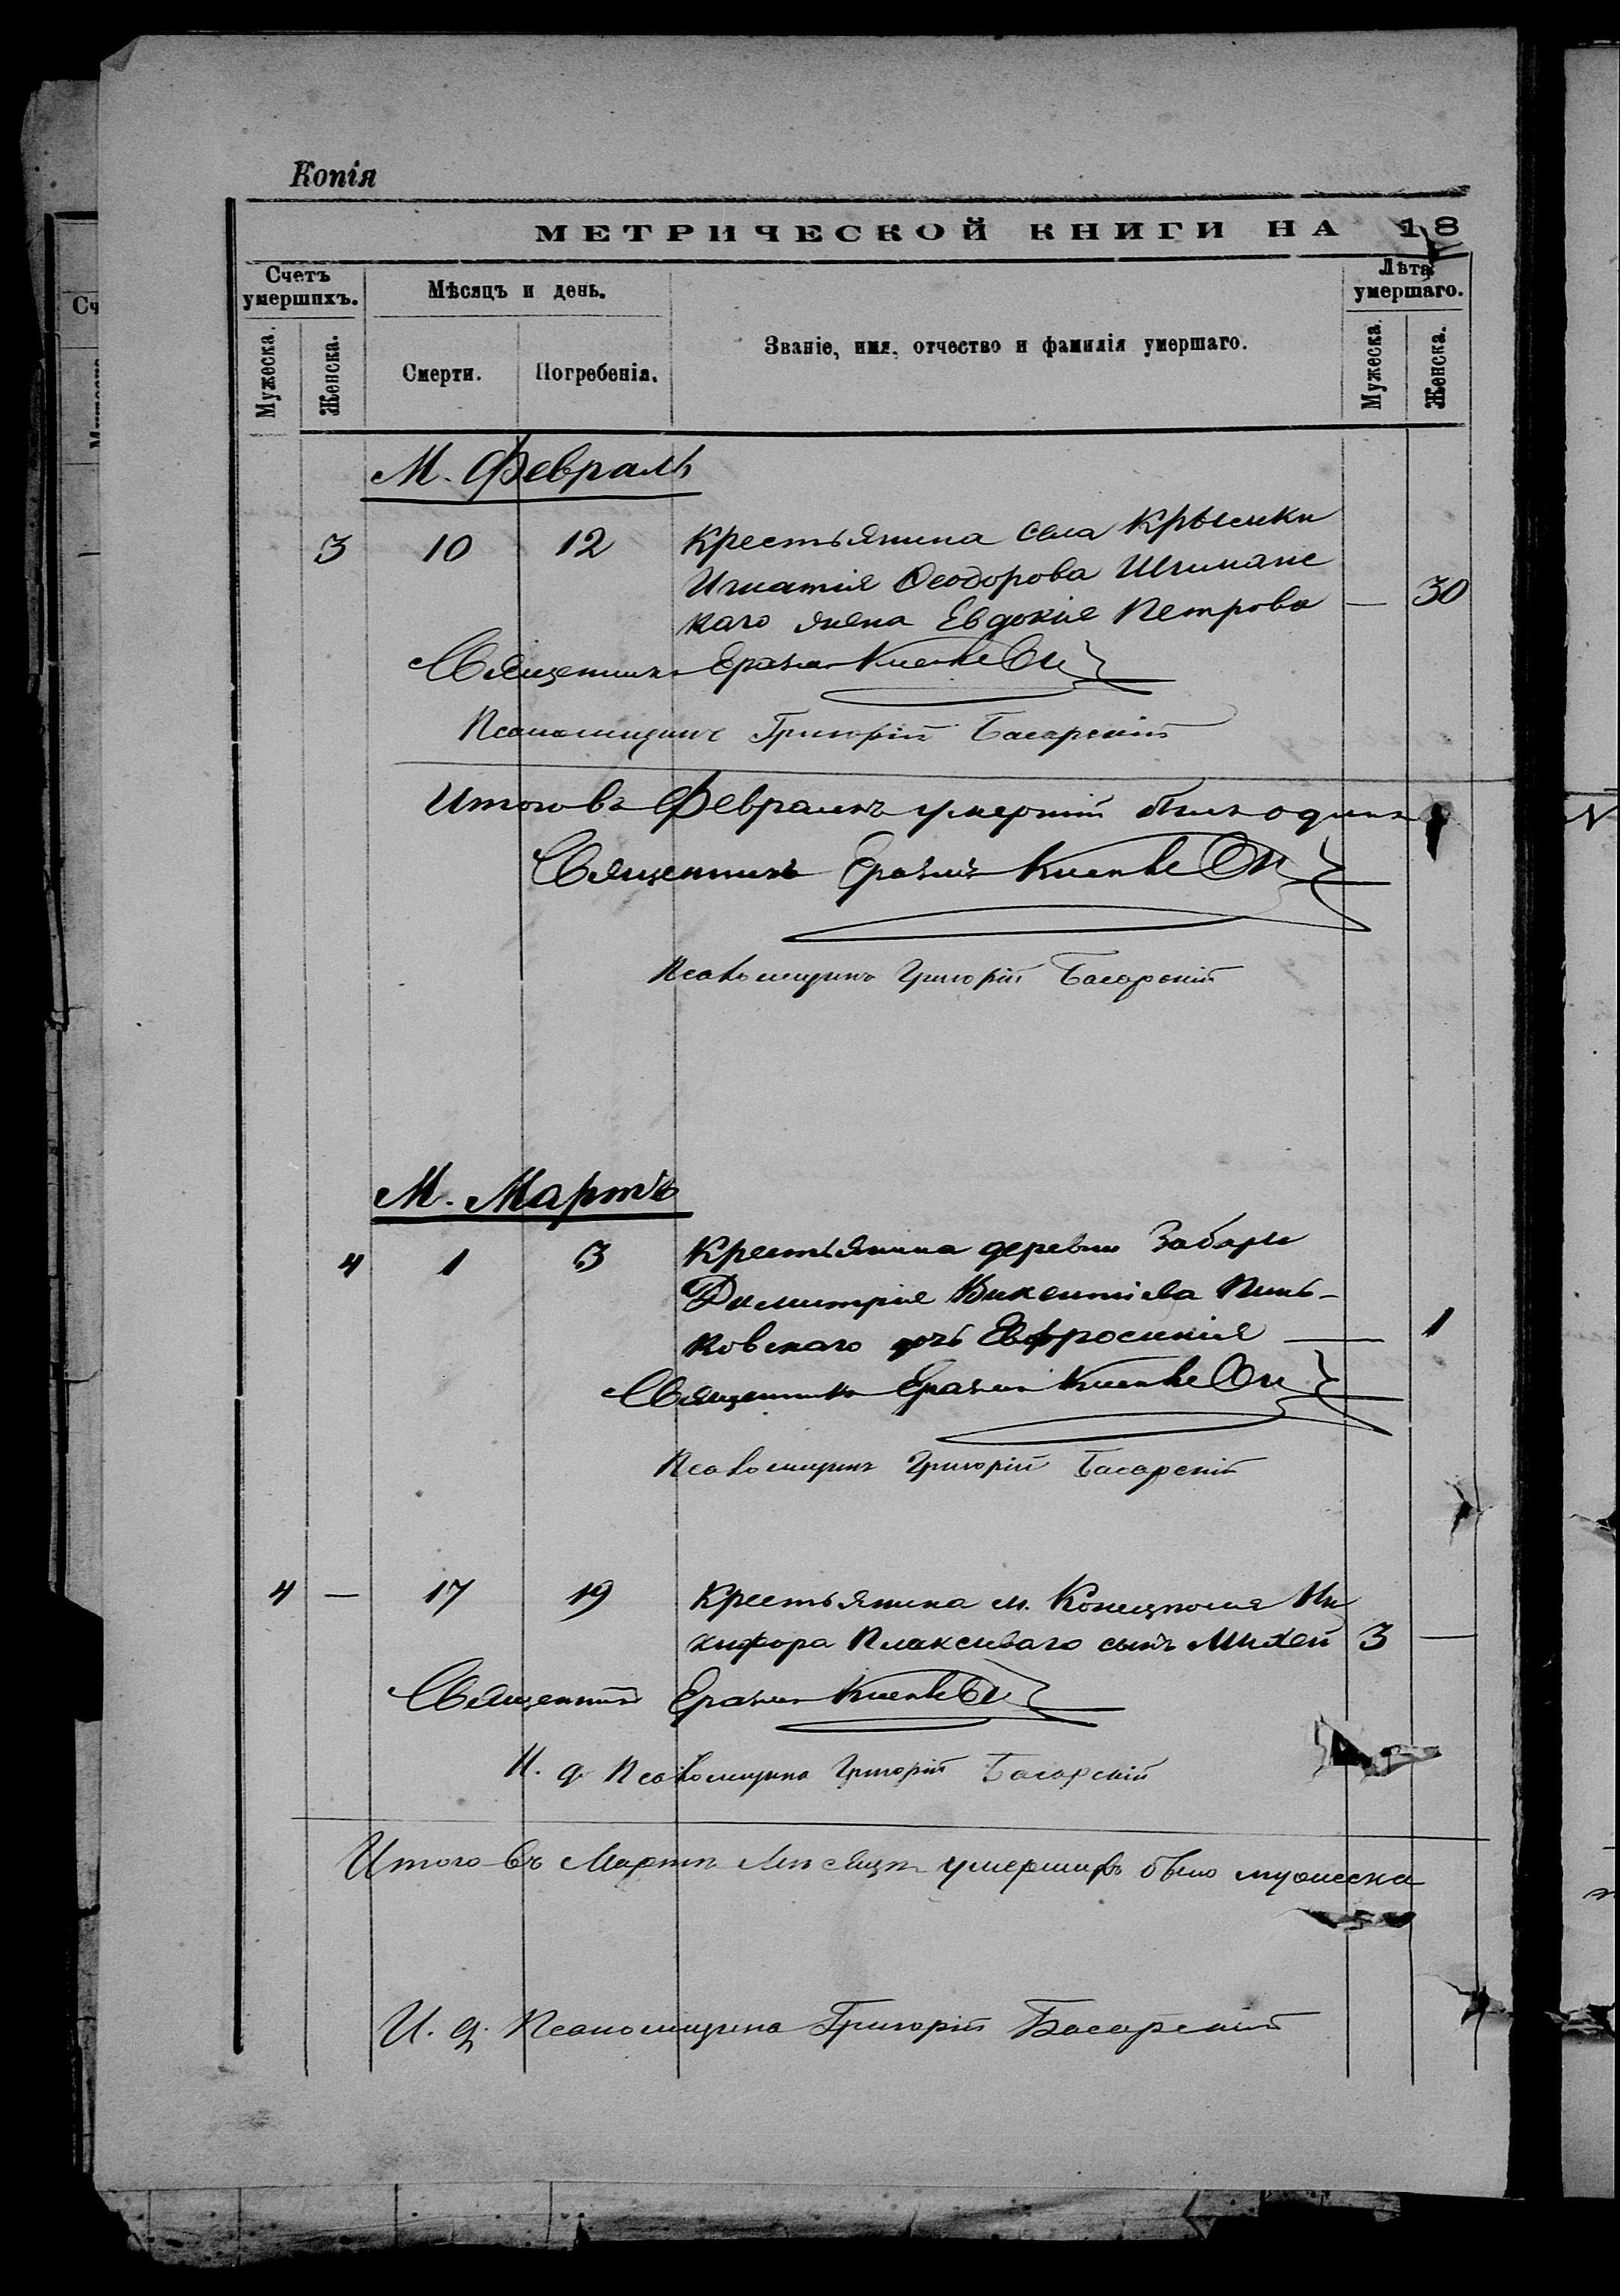 Копія
МЕТРИЧЕСКОЙ КНИГИ НА 18
Счетъ умершихъ.
Мѣсяцъ и день.
Званіе, имя, отчество и фамилія умершаго.
Лѣта умершаго.
Мужеска.
Женска.
Смерти.
Погребенія.
Мужеска.
Женска.
М. Февраль
3 10 12 Крестьянина села Крысики
Игнатія Ѳеодорова Шиманс
каго жена Евдокія Петрова — 30
Священникъ Еразм
Псаломщикъ Григорій Басарскій
Итого въ Февралѣ умершій былъ одинъ
Священникъ Еразмъ
Псаломщикъ Григорій Басарскій
М. Мартъ
4 1 3 Крестьянина деревни Забары
Димитрія Викентіева Пинь-
ковскаго дочь Евфросинія — 1
Священникъ Еразмъ
Псаломщикъ Григорій Басарскій
4 — 17 19 Крестьянина м. Конецполя Ни
кифора Плаксиваго сынъ Михей 3 —
Священникъ Еразмъ
И. д. Псаломщика Григорій Басарскій
Итого въ Мартѣ мѣсяцѣ умершихъ было мужеска
И. д. Псаломщика Григорій Басарскій